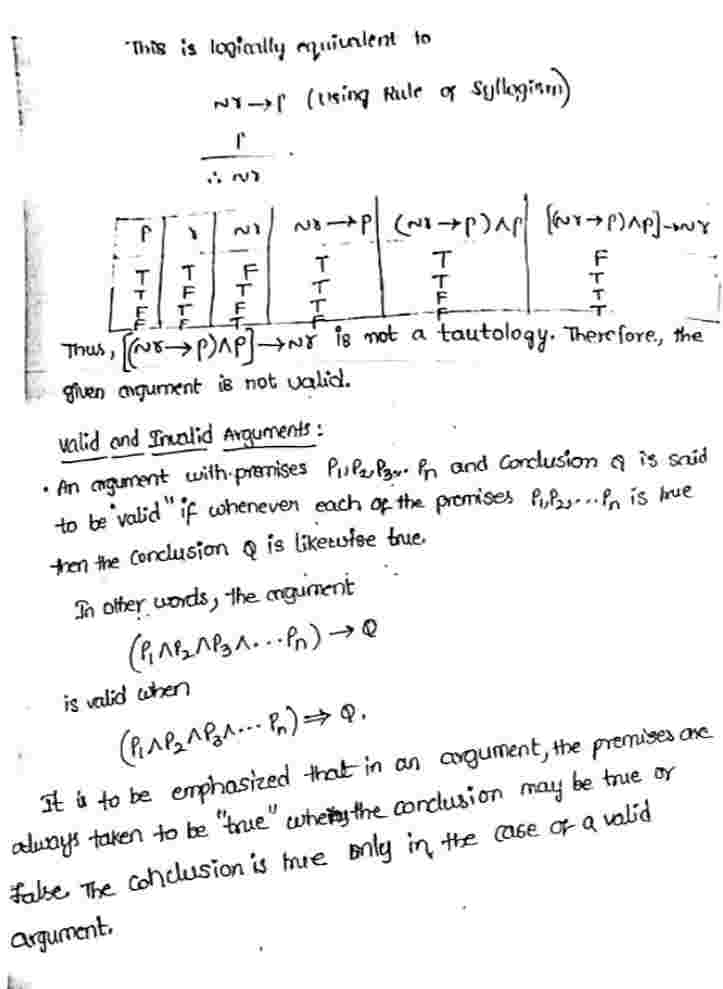 This is logically equivalent to
~r → p (Using Rule of Syllogism)
p
∴ ~r
p | r | ~r | ~r → p | (~r → p) ∧ p | [(~r → p) ∧ p] → ~r
T | T | F | T | T | F
T | F | T | T | T | T
F | T | F | T | F | T
F | F | T | F | F | T
Thus, [(~r → p) ∧ p] → ~r is not a tautology. Therefore, the
given argument is not valid.
Valid and Invalid Arguments :
• An argument with premises P₁, P₂, P₃, ... Pₙ and Conclusion Q is said
to be "valid" if whenever each of the premises P₁, P₂, ... Pₙ is true
then the Conclusion Q is likewise true.
In other words, the argument
(P₁ ∧ P₂ ∧ P₃ ∧ ... Pₙ) → Q
is valid when
(P₁ ∧ P₂ ∧ P₃ ∧ ... Pₙ) ⇒ Q.
It is to be emphasized that in an argument, the premises are
always taken to be "true" the conclusion may be true or
false. The conclusion is true only in the case of a valid
argument.